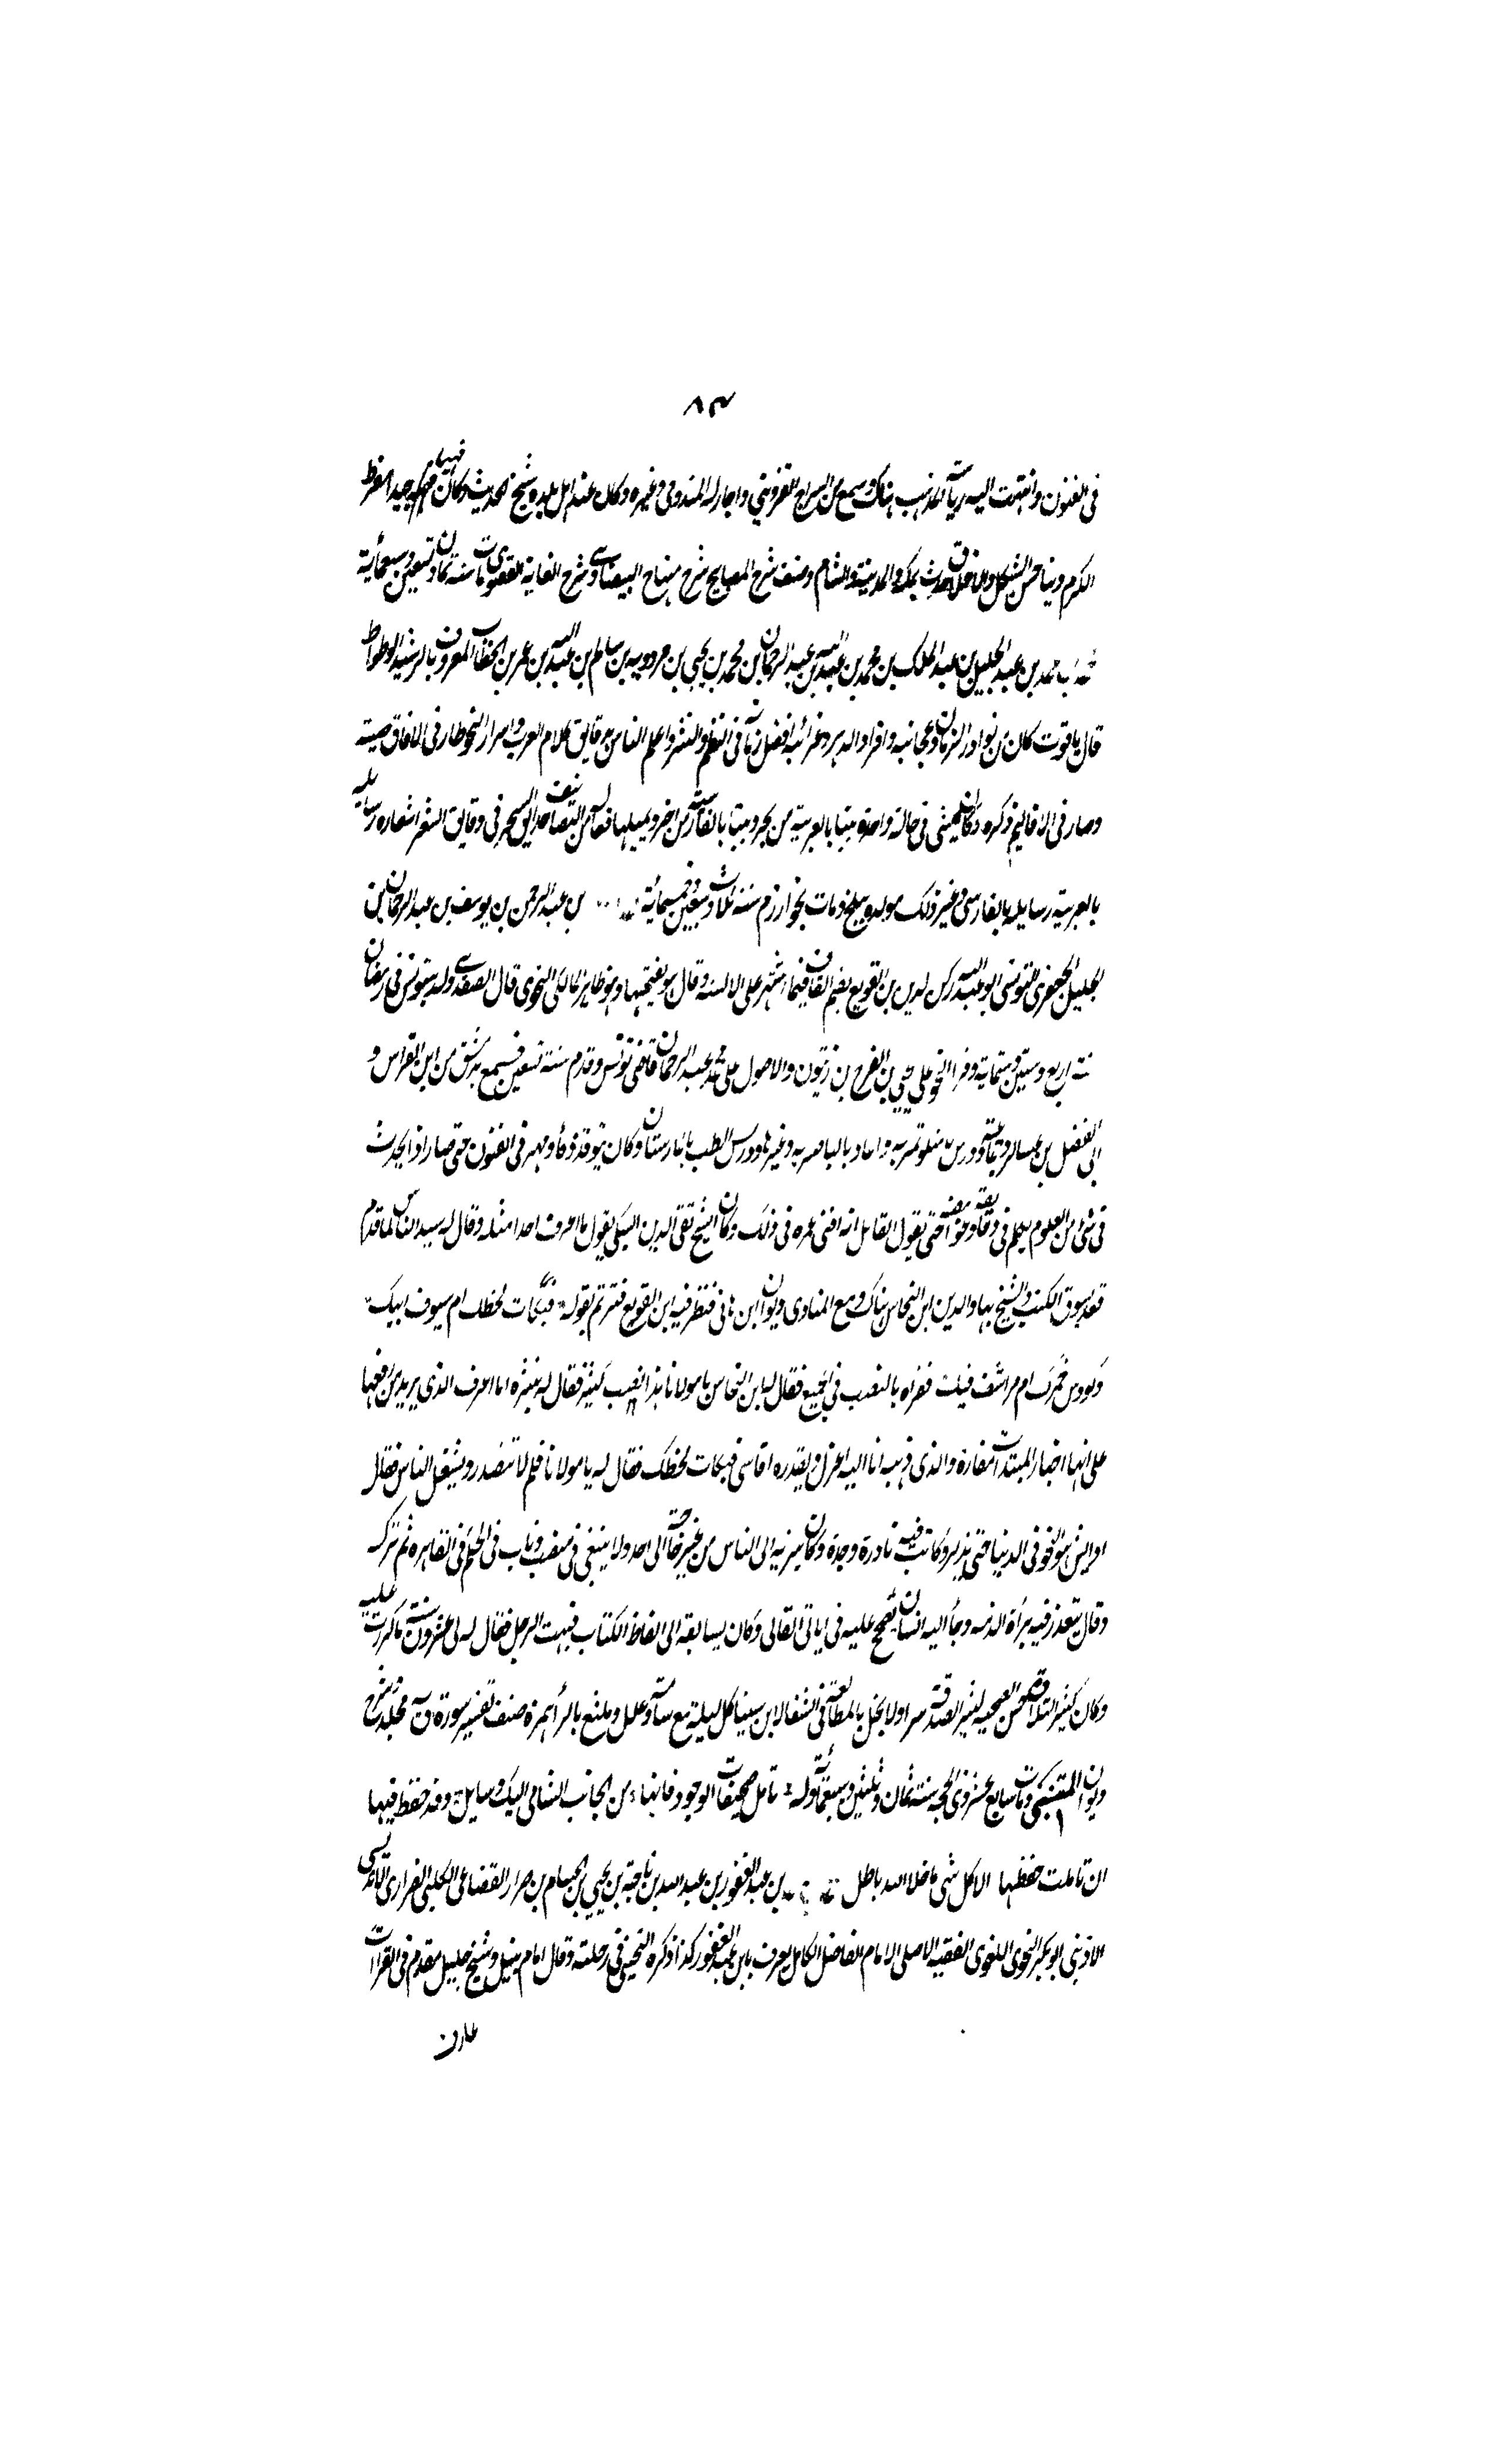 ٨٣
فى الفنون وانتهت اليه رياسة المذهب هناك وسمع من السراج القزوينى واجاز له الميدومى وغيره وكان عند اهل بلده شيخ الحديث وكان فيها
الكرم دينا حسن الشكل والاخلاق حدث بمكة والمدينة والشام وصنف شرح المصابيح شرح منهاج البيضاوى شرح الغاية القصوى مات سنة وتسعين وسبعمائة
محمد بن عبد الجليل بن عبد الملك بن محمد بن عبد الله بن عبد الرحمان بن محمد بن يحيى بن مردويه بن سالم بن عبد الله بن عمر بن الخطاب المعروف بالرشيد الوطواط
قال ياقوت كان من نوادر الزمان وعجائبه وافراد الدهر وغرائبه افضل زمانه فى النظم والنثر واعلم الناس بدقايق كلام العرب واسرار النحو طار فى الافاق صيته
وصار فى الاقاليم ذكره وكان ينشى فى حالة واحدة بيتا بالعربية من بحر وبيتا بالفارسية من اخر ويمليهما معا له من التصانيف حدايق السحر فى دقايق الشعر اشعاره رسايله
بالعربية رسايله بالفارسى وغير ذلك مولده ببلخ ومات بخوارزم سنة ثلاث وسبعين وخمسمائة بن عبد الرحمن بن يوسف بن عبد الرحمان بن
الجليل الجعفرى التونسى ابو عبد الله ركن الدين بن القويع بضم القاف فيما اشتهر على الالسنة وقال هو بفتحها وهو طاير المالكى النحوى قال الصفدى ولد بتونس فى رمضان
سنة اربع وستين وستماية وقرا النحو على يحيى بن الفرج بن زيتون والاصول على محمد بن عبد الرحمان قاضى تونس وقدم سنة تسعين فسمع بدمشق من ابن القواس و
ابى الفضل بن عساكر وجماعة ودرس بالمنكوتمرية واعاد بالناصرية وغيرها ودرس الطب بالمارستان وكان يتوقد ذكاء ومهر فى الفنون حتى صار اذا تحدث
فى شئ من العلوم يتكلم فى دقايقه وغوامضه حتى يقول القايل انه افنى عمره فى ذلك وكان الشيخ تقى الدين السبكى يقول ما اعرف احدا مثله وقال له سيد الناس لما قدم
قعد بسوق الكتب والشيخ بهاء الدين ابن النحاس هناك ومع المنادى ديوان ابن هانى فنظر فيه ابن القويع فترنم بقوله فتكات لحظك ام سيوف ابيك
وكووس خمرك ام مراشف فيك فقراه بالنصب فى الجميع فقال له ابن النحاس يا مولانا هذا نصب كثير فقال له بنتره انا اعرف الذى يريد من رفعها
على انها اخبار لمبتدآت مقدرة والذى ذهب انا اليه اغزل ويقدره اقاسى فتكات لحظك فقال له يا مولانا فلم لا تتصدر ويشغل الناس فقال
او ايش هو النحو فى الدنيا حتى يذكر وكانت فيه بادرة وحدة وكان يتردد الى الناس من غير حاجة الى احد ولا يبتغى فى منصب وناب فى الحكم فى القاهرة ثم تركه
وقال يتعذر فيه براءة الذمه وجاء اليه انسان يصحح عليه فى امالى القالى وكان يسابقه الى الفاظ الكتاب فبهت الرجل فقال له لى عشرون سنة ما كررت عليه
وكان كثير التلاوة حسن الصحبة كثير الصدقة سرا ولا يخل بالمطالعة فى الشفا لابن سينا كل ليلة مع سآمة وملل ويلثغ بالراء همزة صنف تفسير سورة ق مجلد شرح
ديوان المتنبى ومات سابع عشر ذى الحجة سنة ثمان وثلثين وسبعمائة وله تامل صحيفات الوجود فانها من الجانب السامى اليك رسايل وقد خط فيها
ان تاملت خطها الا كل شى ما خلا الله باطل بن عبد الغفور بن عبد الله بن ناجية بن يحيى بن الحسام بن ضرار القضاعى الكلبى الفزارى الاندلسى
الاذنى ابو بكر النحوى اللغوى الفقيه الاصلى الامام الفاضل الكامل يعرف بابن عبد الغفور كذا ذكره التجيبى فى رحلته وقال امام نبيل وشيخ جليل مقدم فى القراآت
عارف